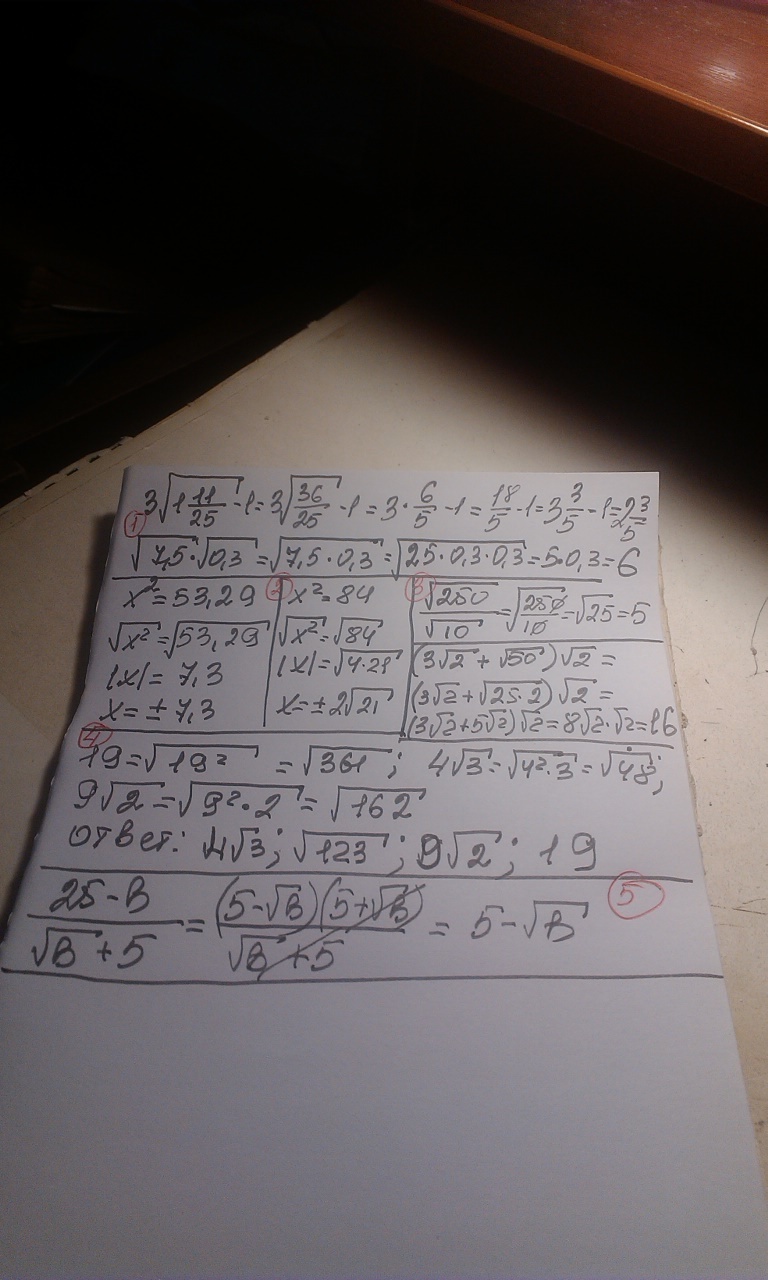 ① 3√(1 11/25) - 1 = 3√(36/25) - 1 = 3 · 6/5 - 1 = 18/5 - 1 = 3 3/5 - 1 = 2 3/5
√7,5 · √0,3 = √(7,5 · 0,3) = √(25 · 0,3 · 0,3) = 5 · 0,3 = 6
x² = 53,29
√x² = √53,29
|x| = 7,3
x = ± 7,3
② x² = 84
√x² = √84
|x| = √(4 · 21)
x = ± 2√21
③ √250/√10 = √(250/10) = √25 = 5
(3√2 + √50)√2 =
(3√2 + √(25 · 2))√2 =
(3√2 + 5√2)√2 = 8√2 · √2 = 16
④ 19 = √19² = √361; 4√3 = √(4² · 3) = √48;
9√2 = √(9² · 2) = √162
ответ: 4√3; √123; 9√2; 19
(25 - В)/(√В + 5) = (5 - √В)(5 + √В)/(√В + 5) = 5 - √В ⑤